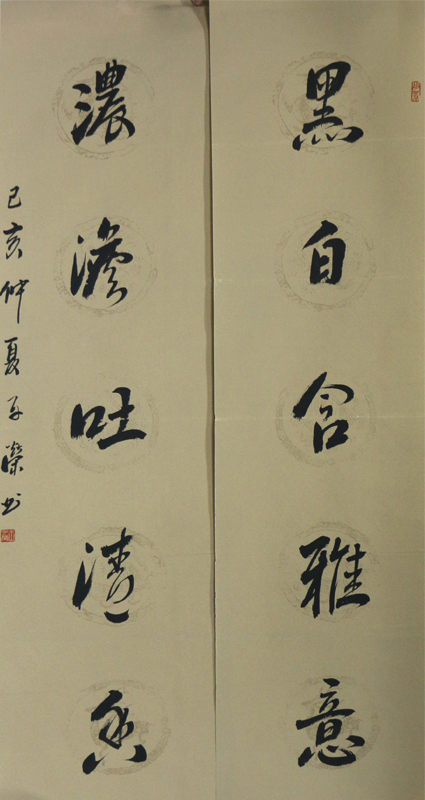 黑白含雅意
濃澹吐清香
己亥仲夏子榮书